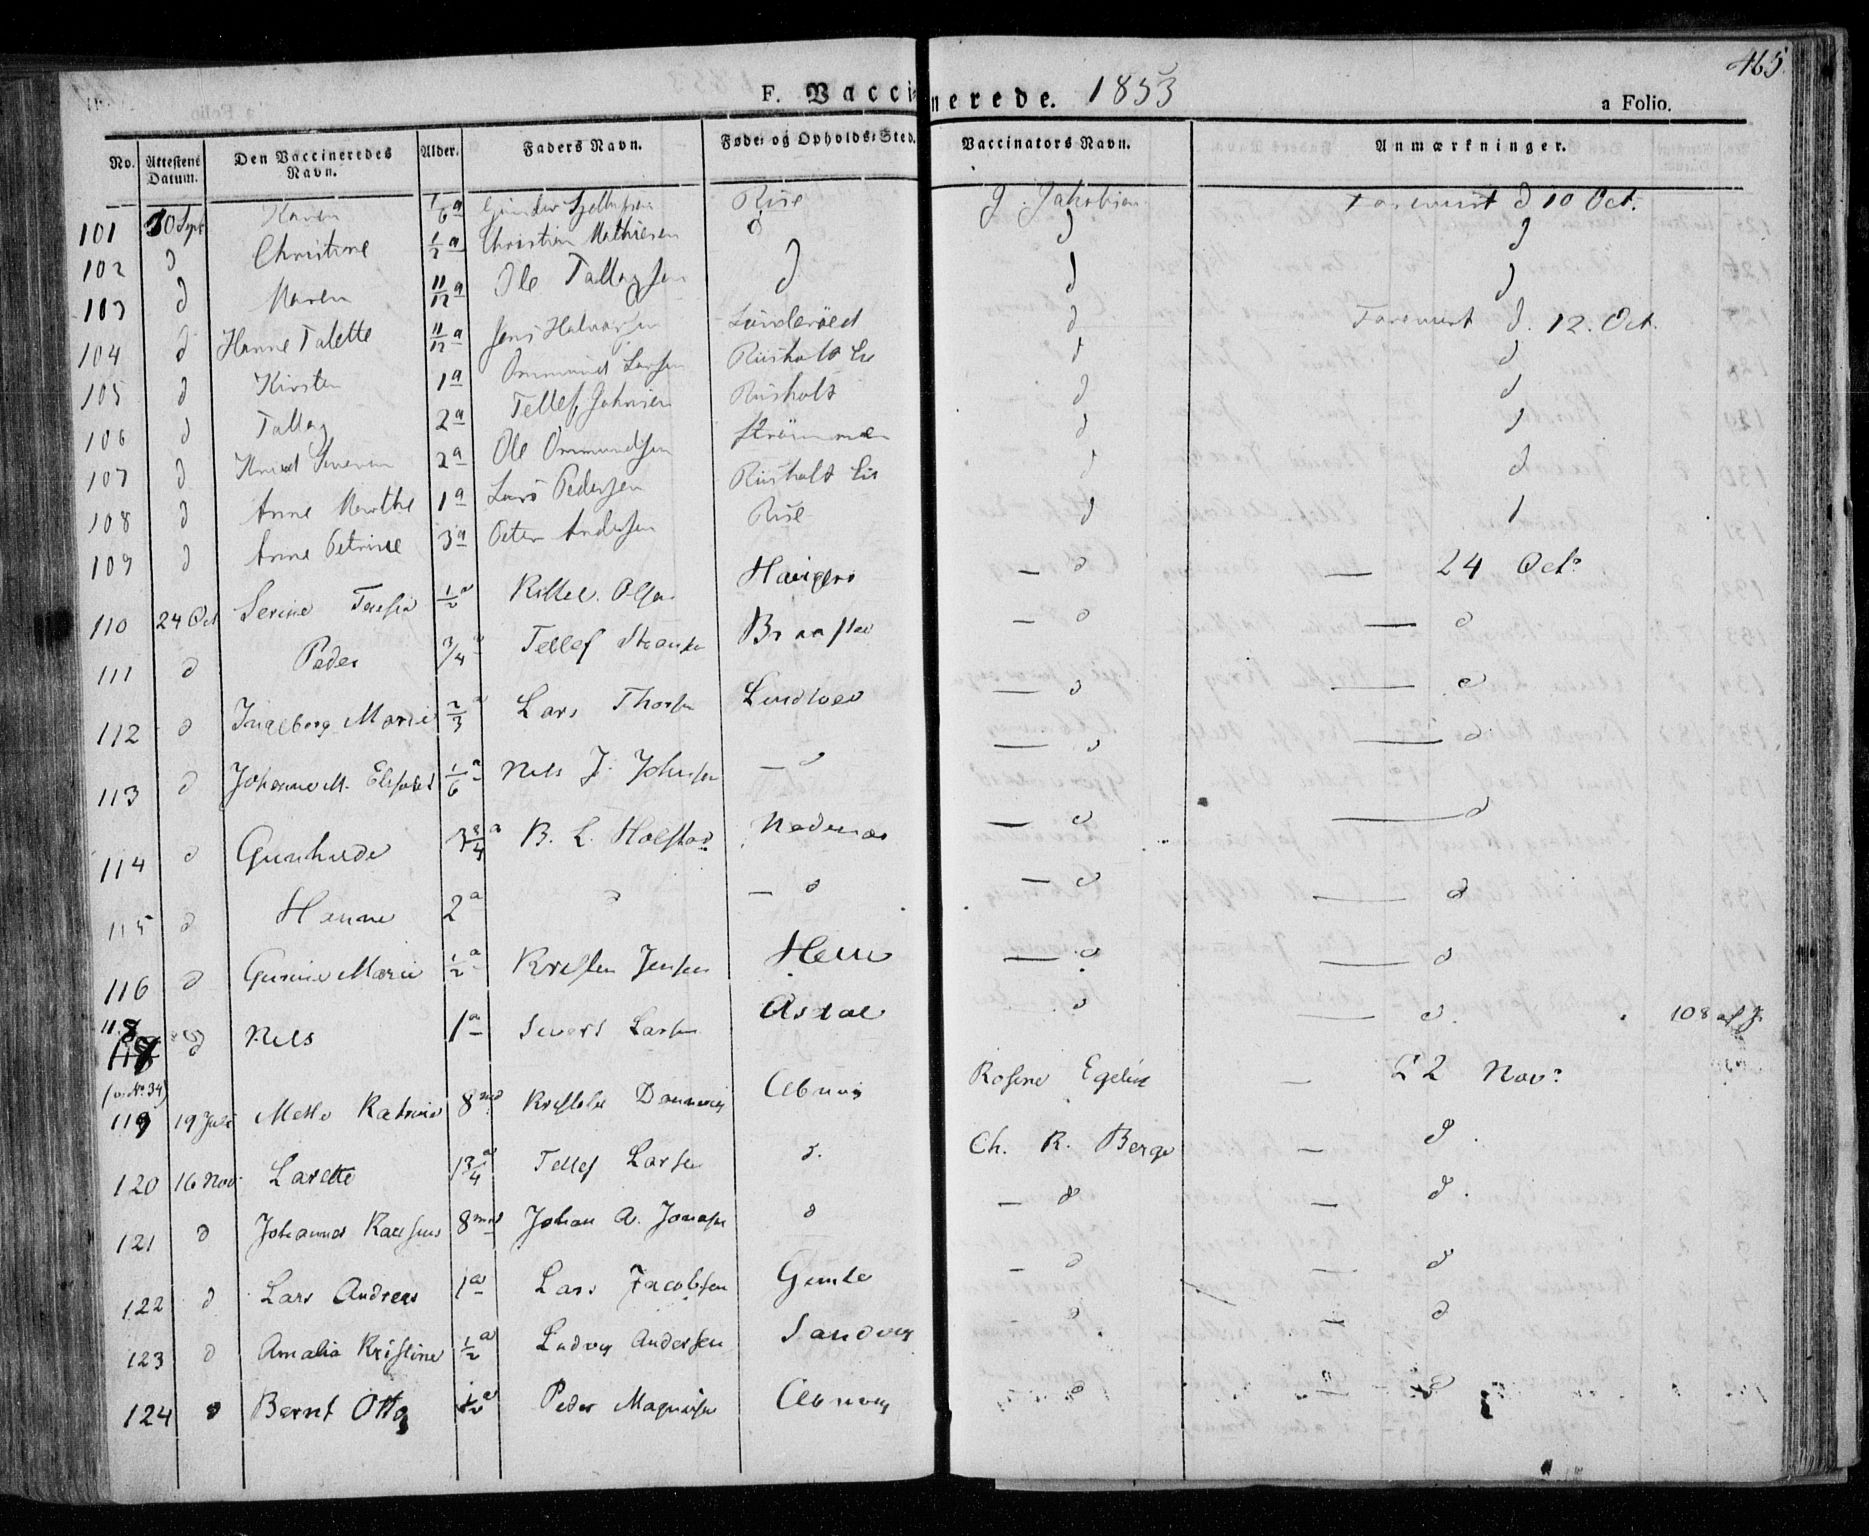 465.
F. Vaccinerede. 1853
a Folio.
No. Attestens Datum. Den Vaccineredes Navn. Alder. Faders Navn. Føde- og Opholds-Sted. Vaccinators Navn. Anmærkninger.
101 30 Sept Karen 1/6 a Rise J. Jakobsen Forevist d 10 Oct.
102 d Christine 1/2 a Christian Mathiesen d d d
103 d Maren 11/12 a Ole Tallagsen d d d
104 d Hanne Talette 11/12 a Jens Halvorsen Lunderöed d Forevist d. 12. Oct.
105 d Kirsten 1 a Ommund Larsen Riisholt d d
106 d Tallag 2 a Tellef Johnsen Riisholt d d
107 d Knud Severin 2 a Ole Ommundsen Strömmen d d
108 d Anne Marthe 1 a Lars Pedersen Riisholt d d
109 d Anne Petrine 3 a Peter Andersen Rise d d
110 24 Oct Serine 1/2 a Kittel Olsen — d — 24 Oct.
111 d Peder 3/4 a Tellef — d — d
112 d Ingeborg Marie 2/3 a Lars Thorsen — d — d
113 d Johanne M. Elisabet 1/6 a Nels J. Johnsen — d — d — d
114 d Gunhilde 3 3/4 a B. L. Holstad Nedenæs — d — d
115 d Hanne 2 a d — d — d — d
116 d Gurine Marie 1/2 a Kristen Jensen — d — d
118 d Nels 1 a Sivert Larsen Asdal d — d. 108 af J.
(v. No. 34)
119 19 Juli Mette Katrine 8 md Abnvig — 22 Nov.
120 16 Nov. Larette 1 3/4 a Tellef Larsen d. Ch. R. Berge — d.
121 d Johannes Rasmus 8 md Johan A. d — d — d.
122 d Lars Andreas 1 a Lars Jacobsen Gimle — d — d
123 d Amalia Kristine 1/2 a Ludvig Andersen Sandvig d — d
124 d Bernt Otto 1/2 a Peder Magnusen Abnvig d — d